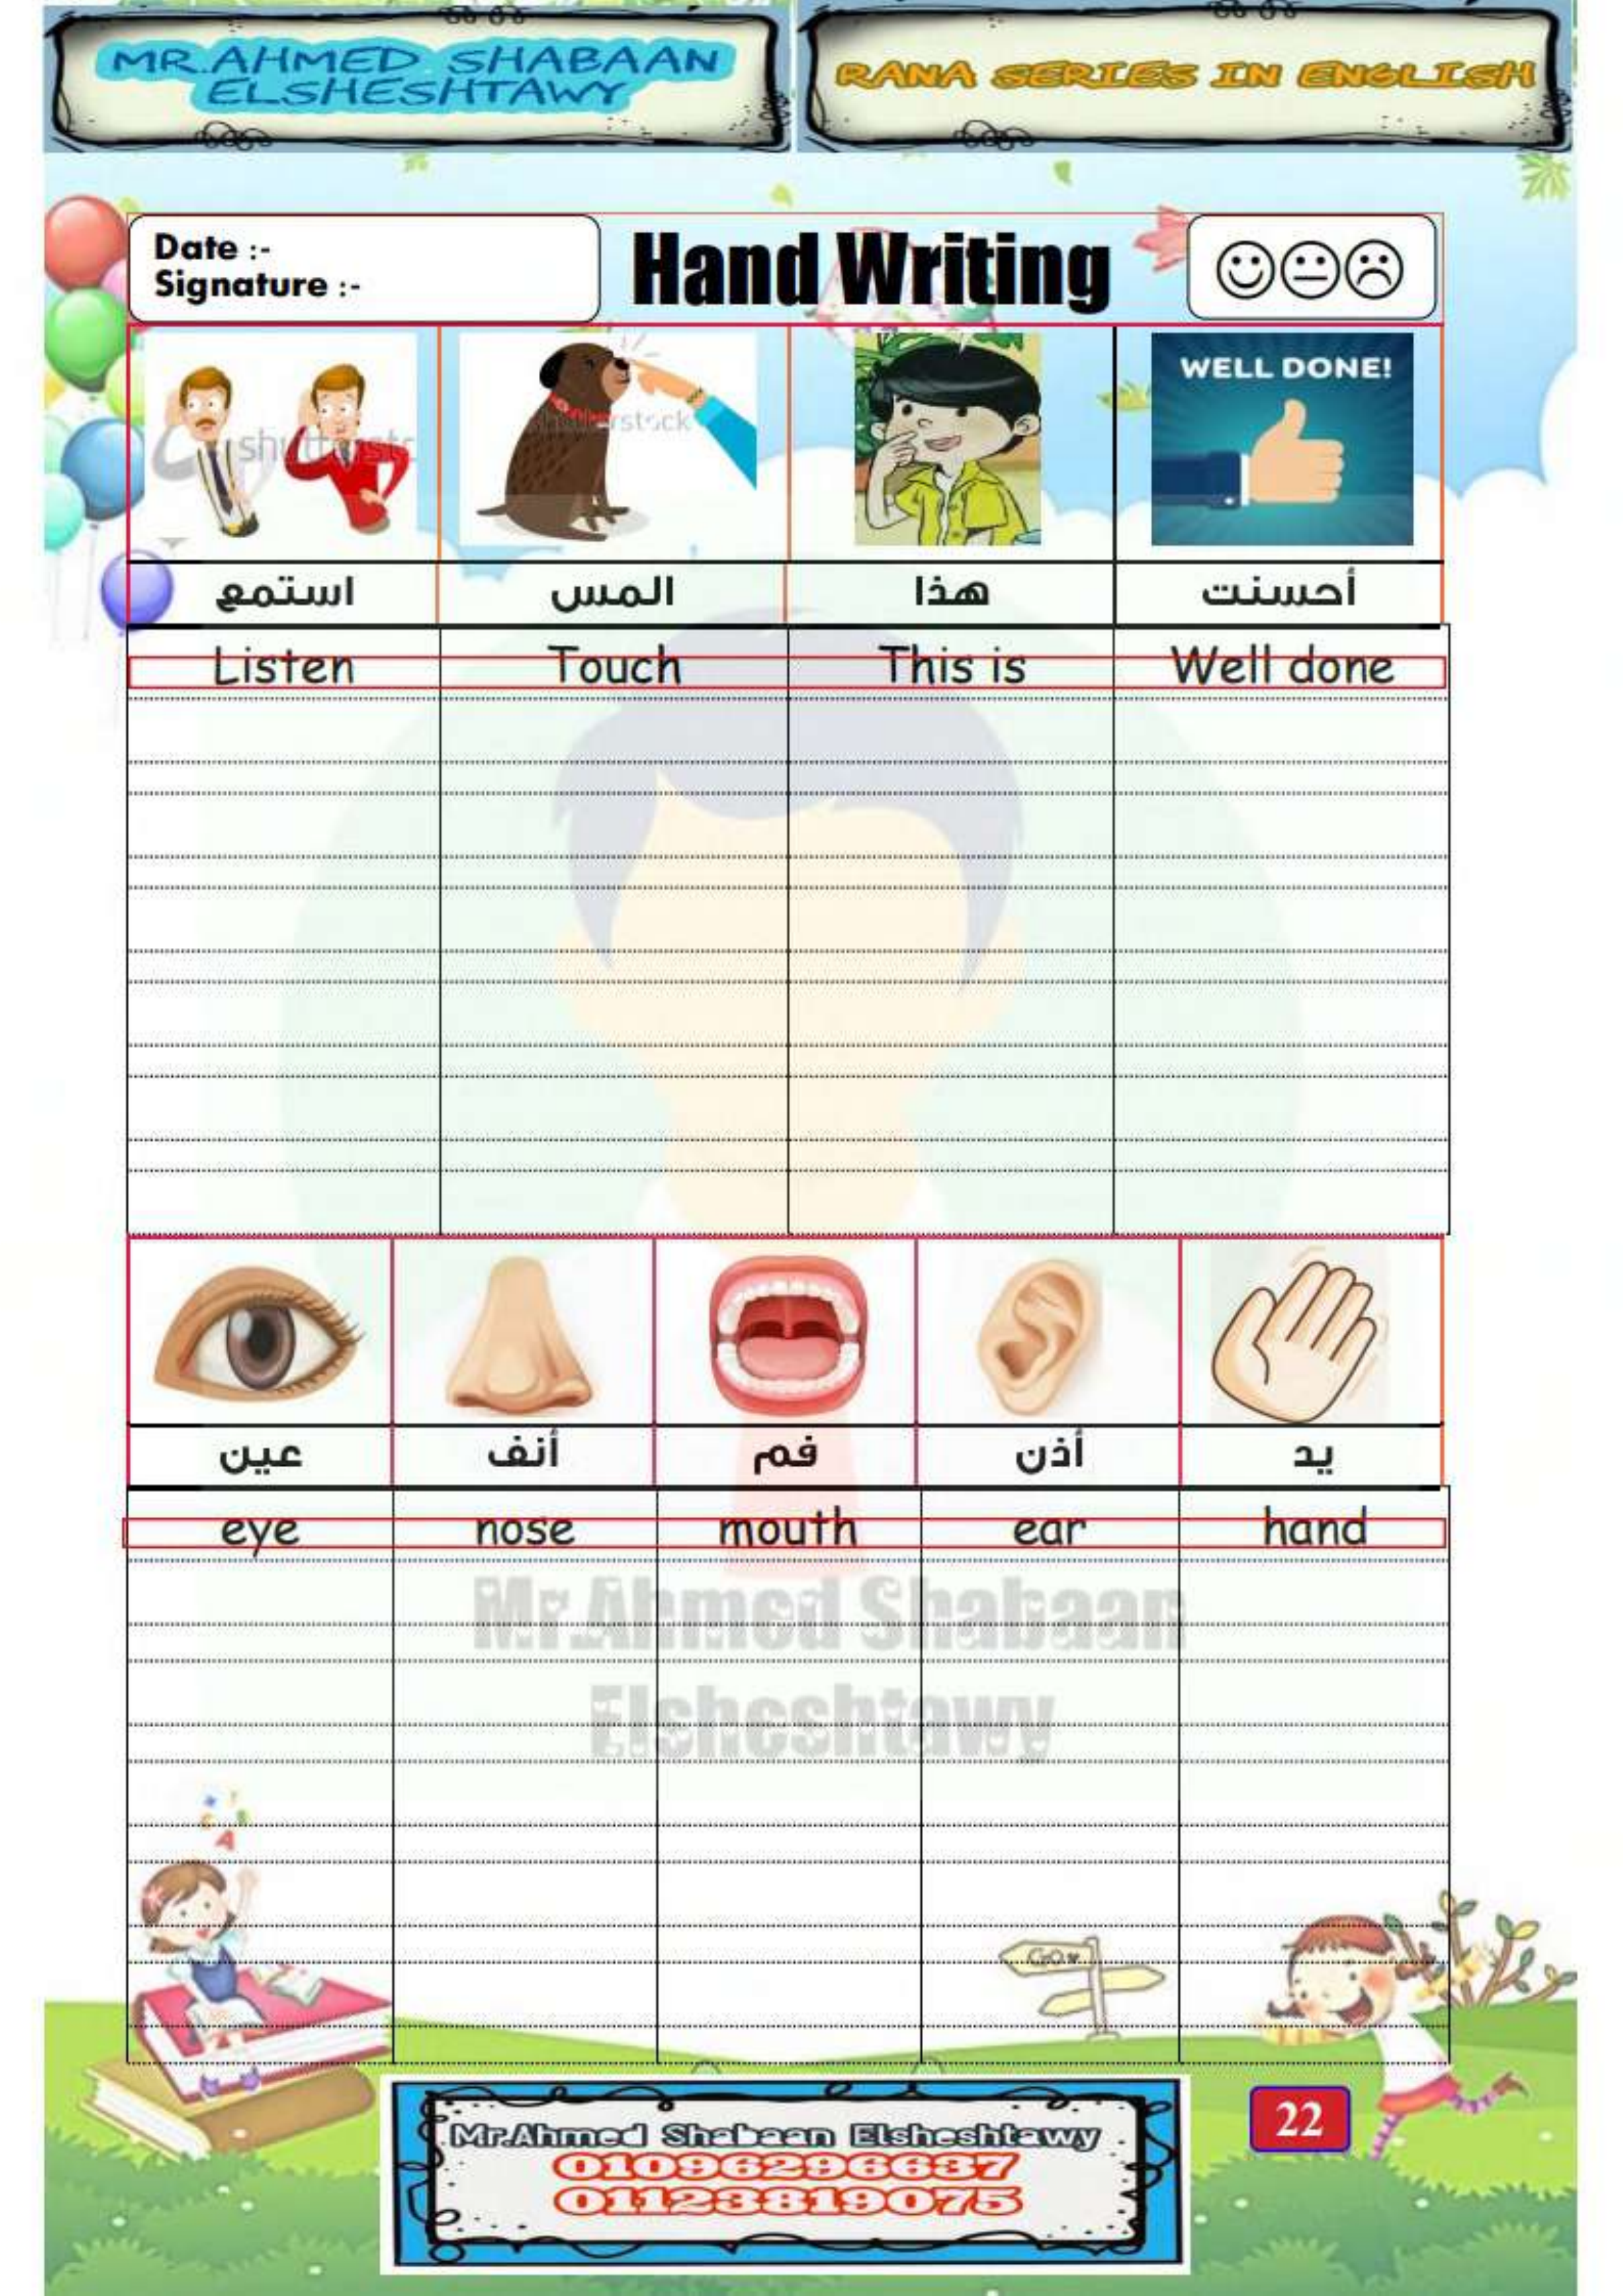 MR.AHMED SHABAAN
ELSHESHTAWY
RANA SERIES IN ENGLISH
Date :-
Signature :-
Hand Writing
shutterstc
shutterstock
WELL DONE!
استمع المس هذا أحسنت
Listen Touch This is Well done
عين أنف فم أذن يد
eye nose mouth ear hand
Mr.Ahmed Shabaan
Elsheshtawy
A
Go
Mr.Ahmed Shabaan Elsheshtawy
01096296637
01123819075
22